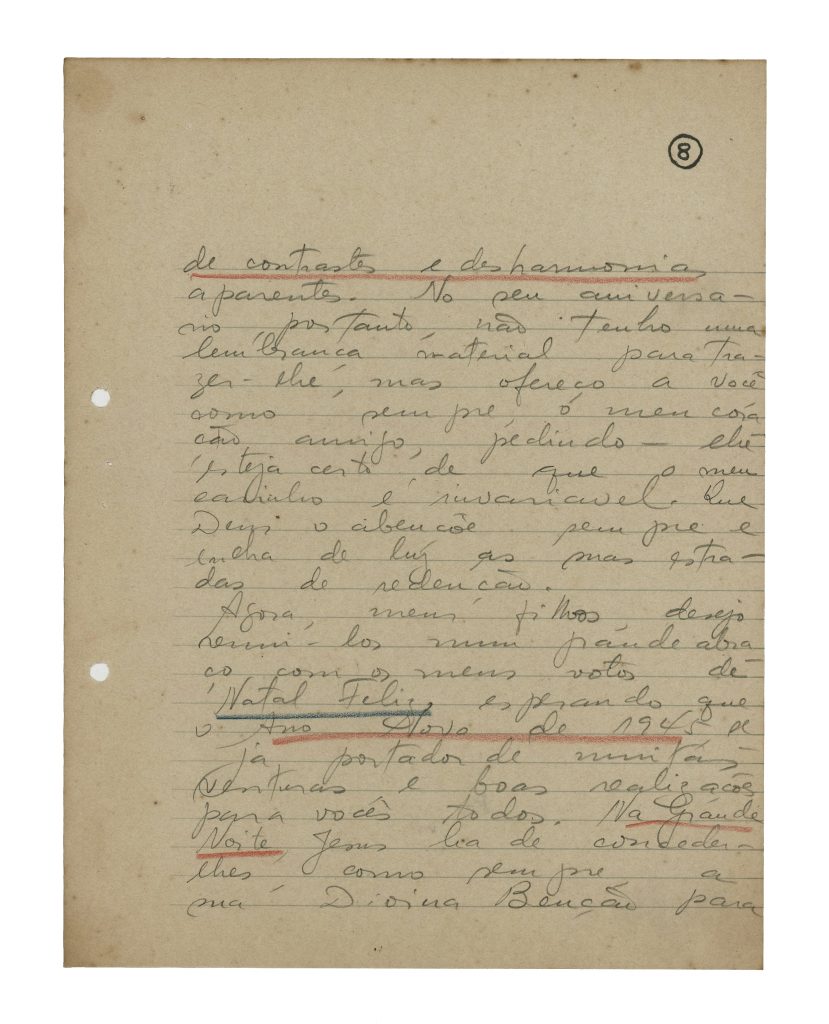 8
de contrastes e desharmonias
aparentes. No seu aniversa-
rio, portanto, não tenho uma
lembrança material para tra-
zer-lhe, mas ofereço a você
como sempre, o meu cora
ção amigo, pedindo-lhe
esteja certo de que o meu
carinho é invariavel. Que
Deus o abençôe sempre e
encha de luz as suas estra-
das de redenção.
Agora, meus filhos, desejo
reuni-los num grande abra
ço com os meus votos de
Natal Feliz, esperando que
o Ano Novo de 1945 se
ja portador de muitas
venturas e boas realizações
para vocês todos. Na Grande
Noite, Jesus ha de conceder-
lhes como sempre a
sua Divina Benção para